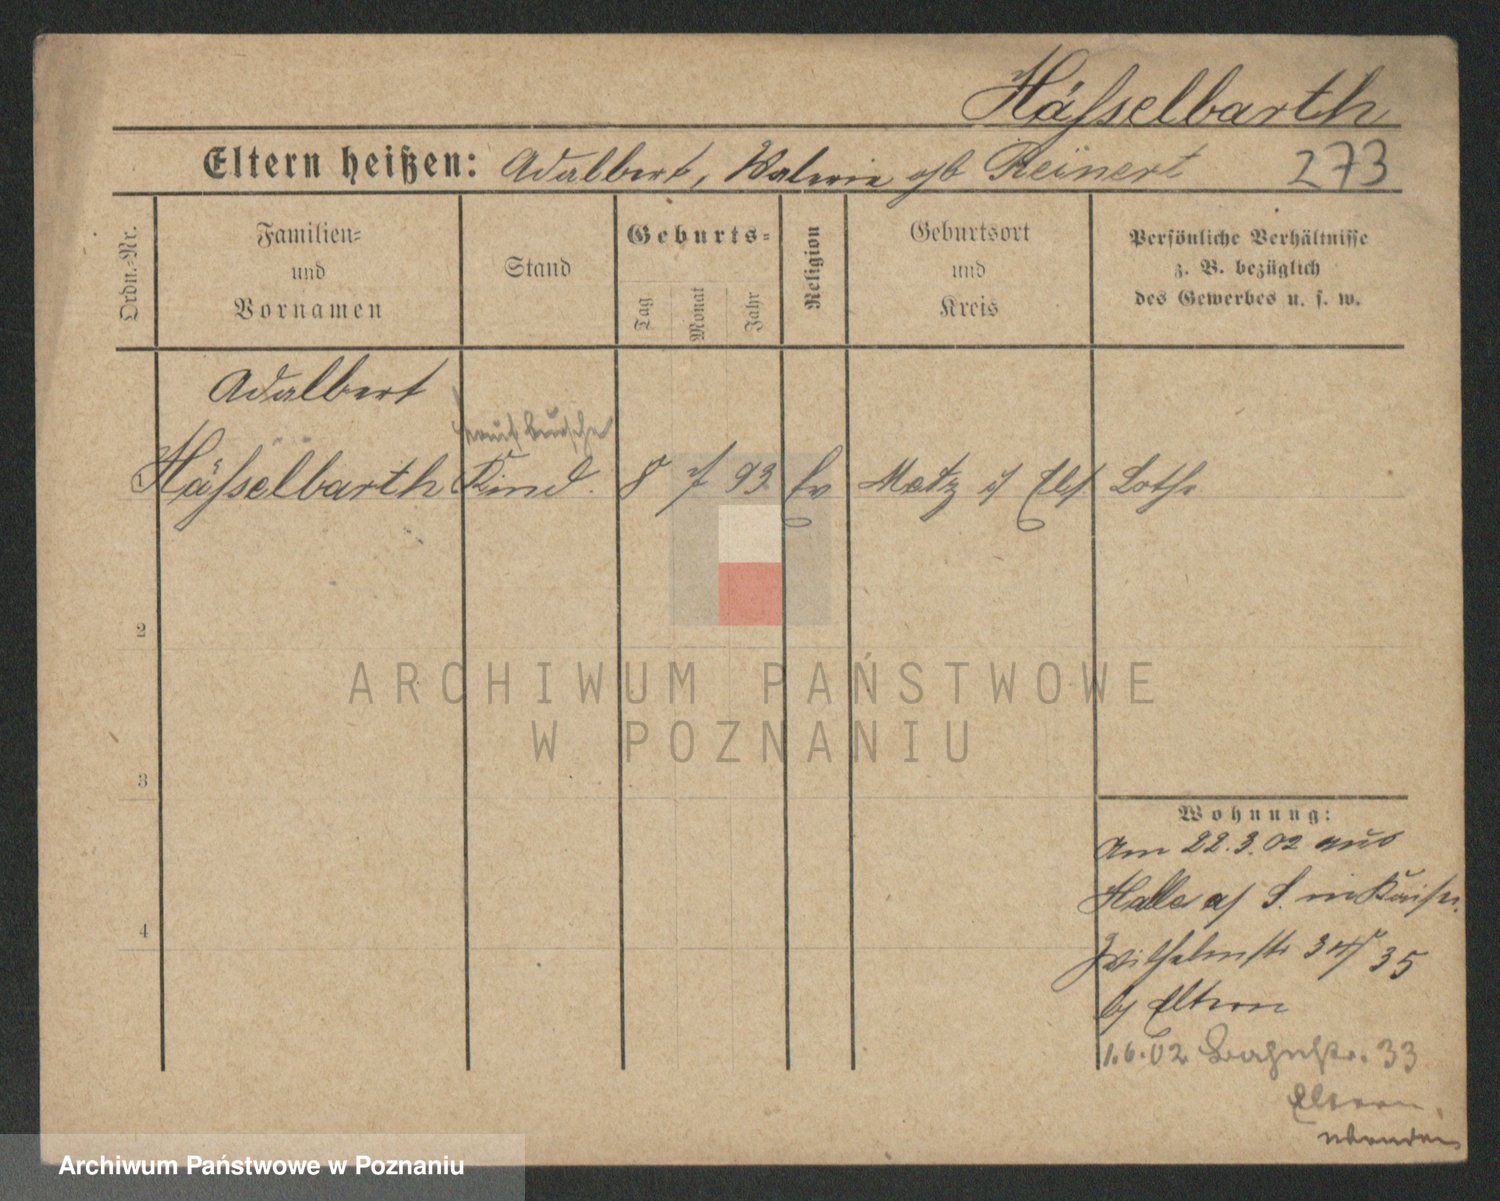 Hässelbarth
Eltern heißen: Adalbert, Valerie gb Reinert 273
Ordn.-Nr.
Familien-
und
Vornamen
Stand
Geburts-
Tag
Monat
Jahr
Religion
Geburtsort
und
Kreis
Persönliche Verhältnisse
z. B. bezüglich
des Gewerbes u. s. w.
Adalbert
Laufbursche
Hässelbarth Kind. 8 7 93 Ev Metz i/ Els Lothr
2
ARCHIWUM PAŃSTWOWE
W POZNANIU
3
Wohnung:
Am 22.3.02 aus
Halle a/ S. in Kaiser
Wilhelmstr 34/35
b/ Eltern
1.6.02 Bahnstr. 33
Eltern
4
Archiwum Państwowe w Poznaniu